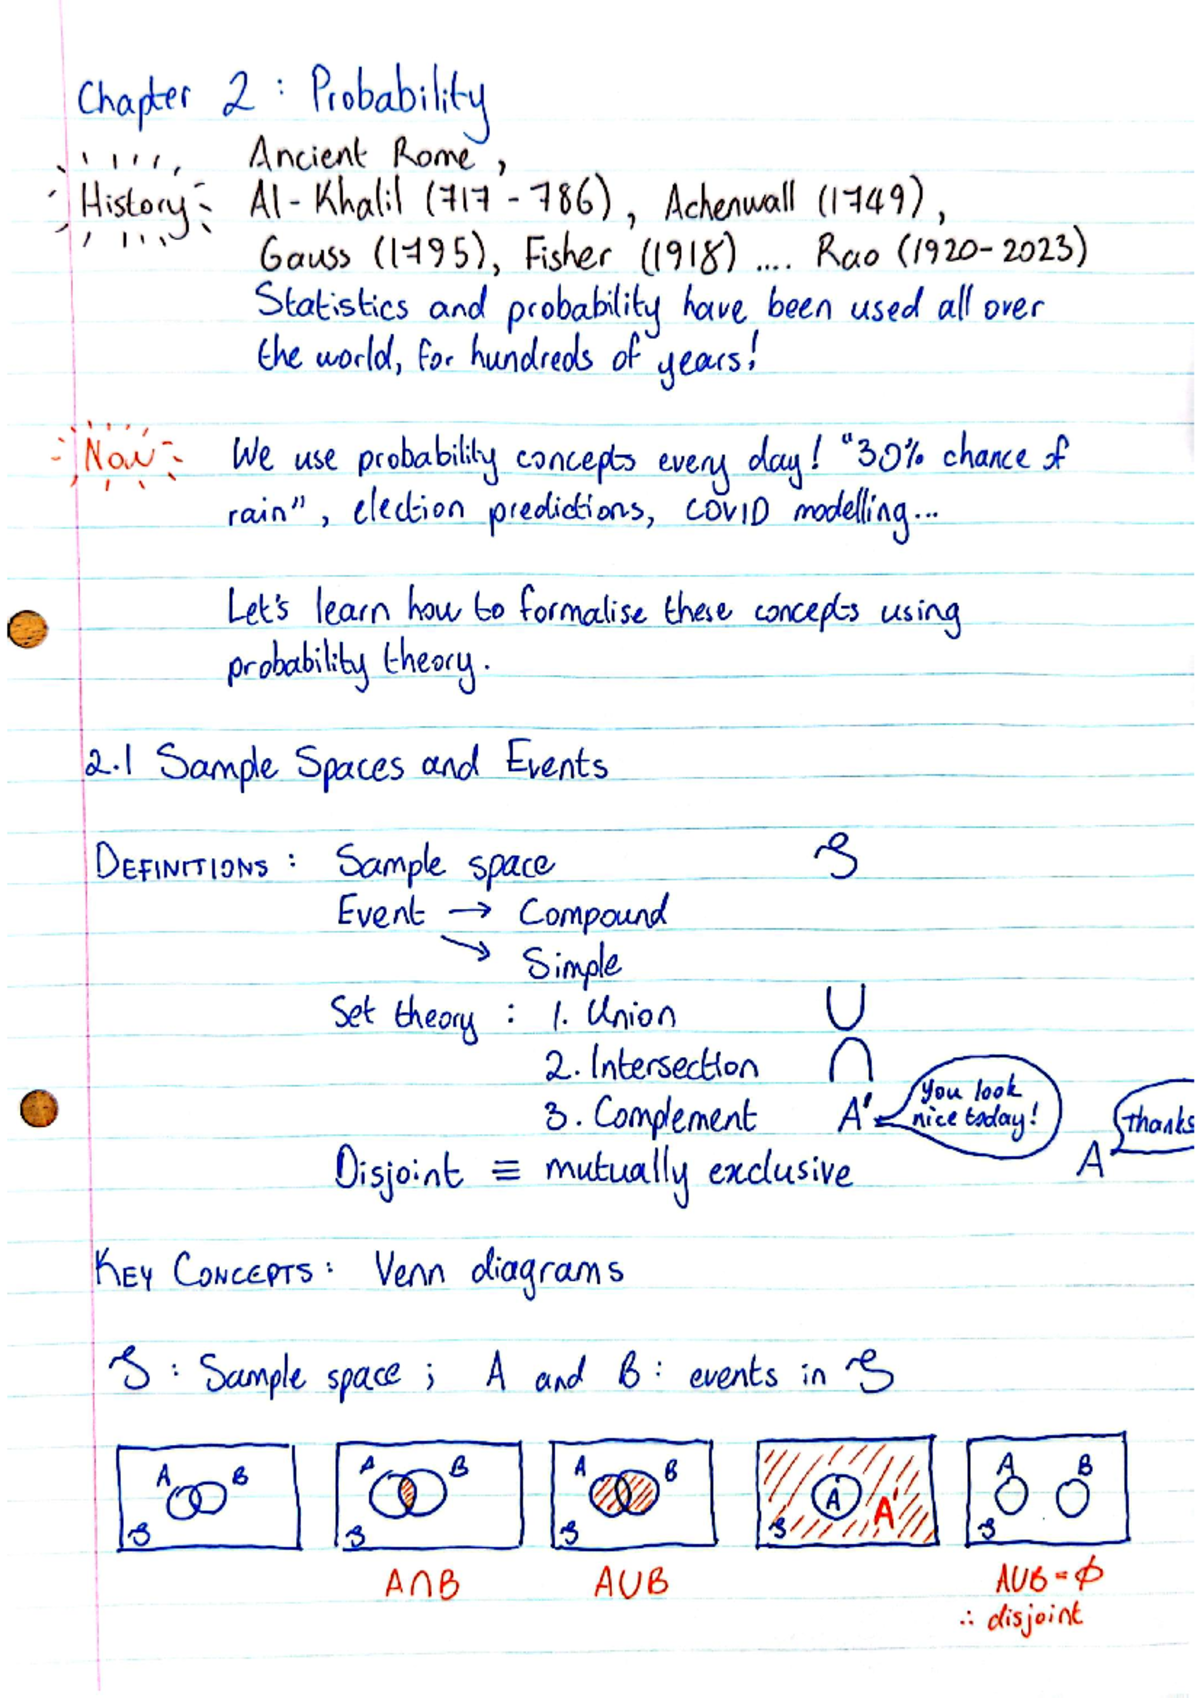 Chapter 2 : Probability
Ancient Rome,
History Al-Khalil (717 - 786), Achenwall (1749),
Gauss (1795), Fisher (1918) .... Rao (1920-2023)
Statistics and probability have been used all over
the world, for hundreds of years!
Now We use probability concepts every day! "30% chance of
rain", election predictions, COVID modelling...
Let's learn how to formalise these concepts using
probability theory.
2.1 Sample Spaces and Events
DEFINITIONS : Sample space S
Event → Compound
→ Simple
Set theory : 1. Union ∪
2. Intersection ∩
3. Complement A' You look nice today! A thanks
Disjoint ≡ mutually exclusive
KEY CONCEPTS : Venn diagrams
S : Sample space ; A and B : events in S
A B S A B S A B S A A' S A B S
A∩B A∪B A∪B = ∅
∴ disjoint